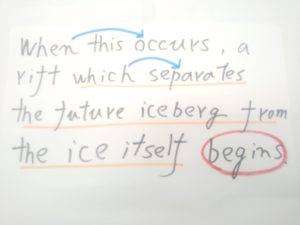 When this occurs, a
rift which separates
the future iceberg from
the ice itself begins.